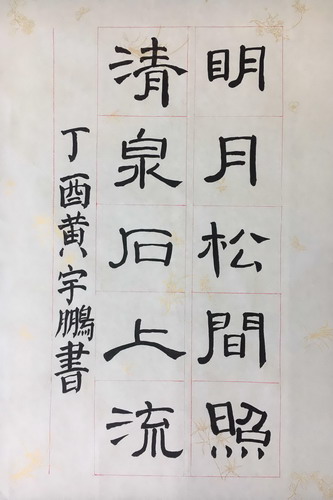 明月松間照
清泉石上流
丁酉黄宇鵬書